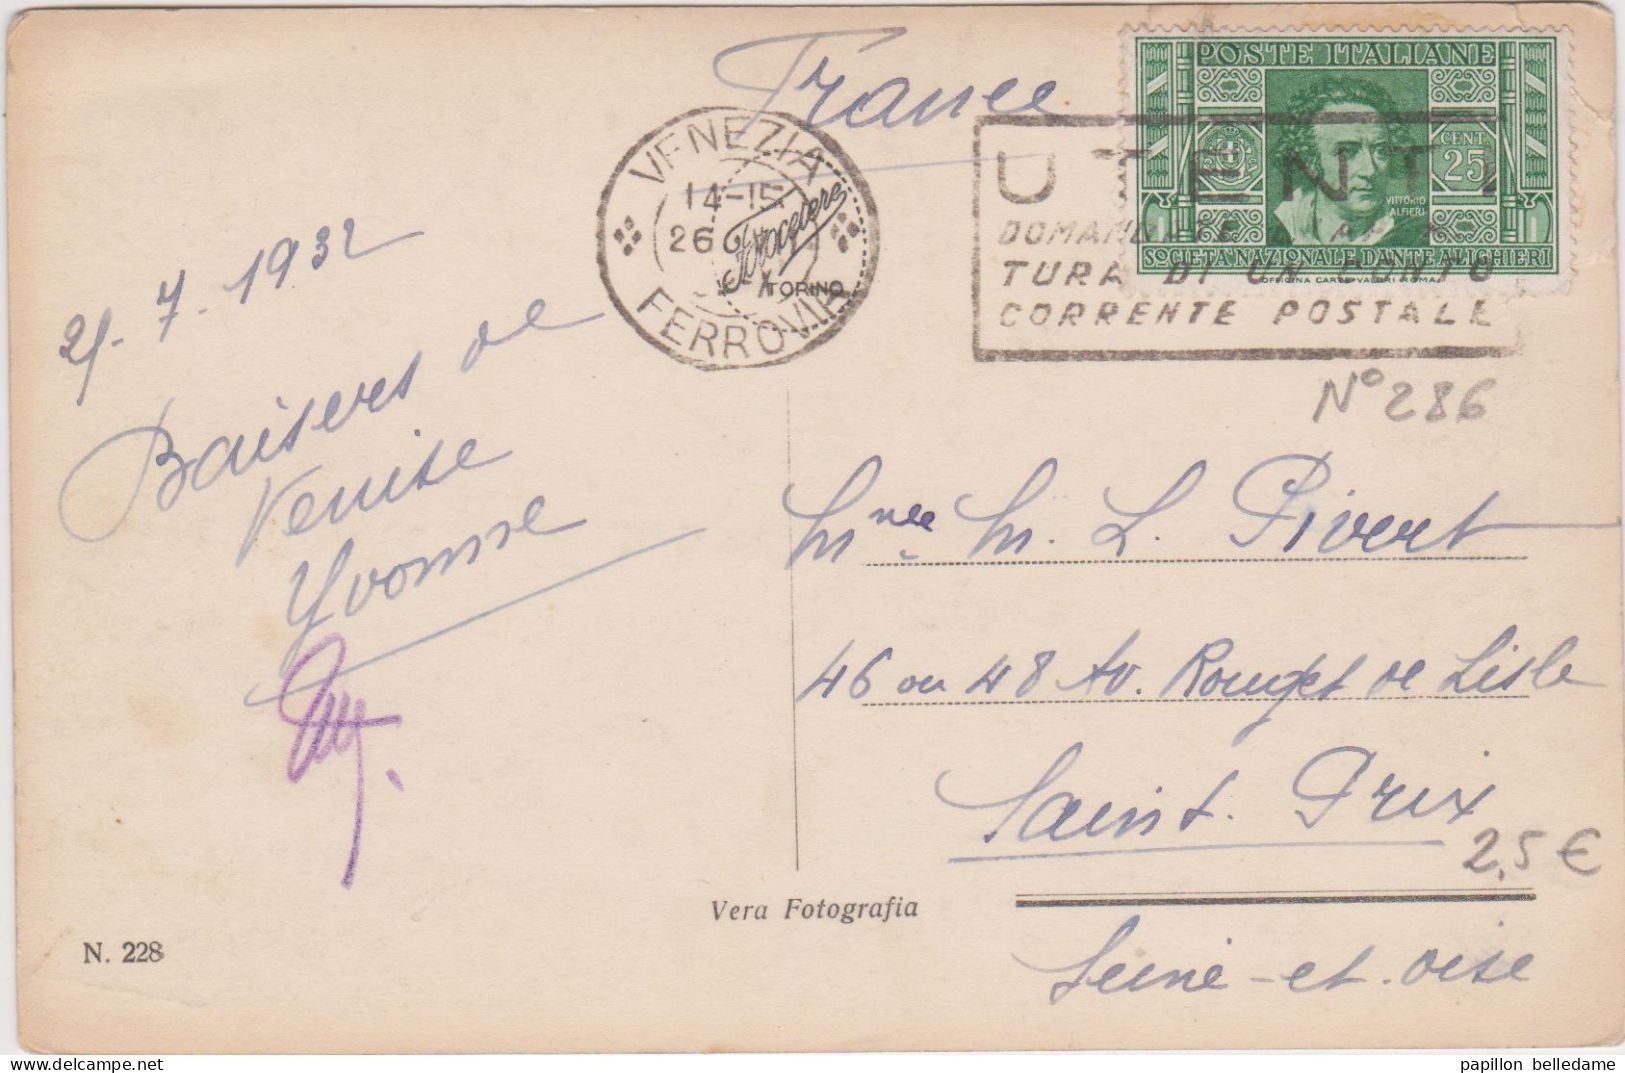 France
POSTE ITALIANE
CENT 25
VITTORIO
ALFIERI
SOCIETÀ NAZIONALE DANTE ALIGHIERI
OFFICINA CARTE VALORI ROMA
VENEZIA
14-15
26
FERROVIA
Fotocelere
TORINO
UTENTI
TURA DI UN CONTO
CORRENTE POSTALE
N° 286
25.7.1932
Baisers de
Venise
Yvonne
Mme M. L. Pivert
46 ou 48 Av. Rouget de Lisle
Saint. Prix
2,5 €
Seine-et-oise
Vera Fotografia
N. 228
papillon belledame